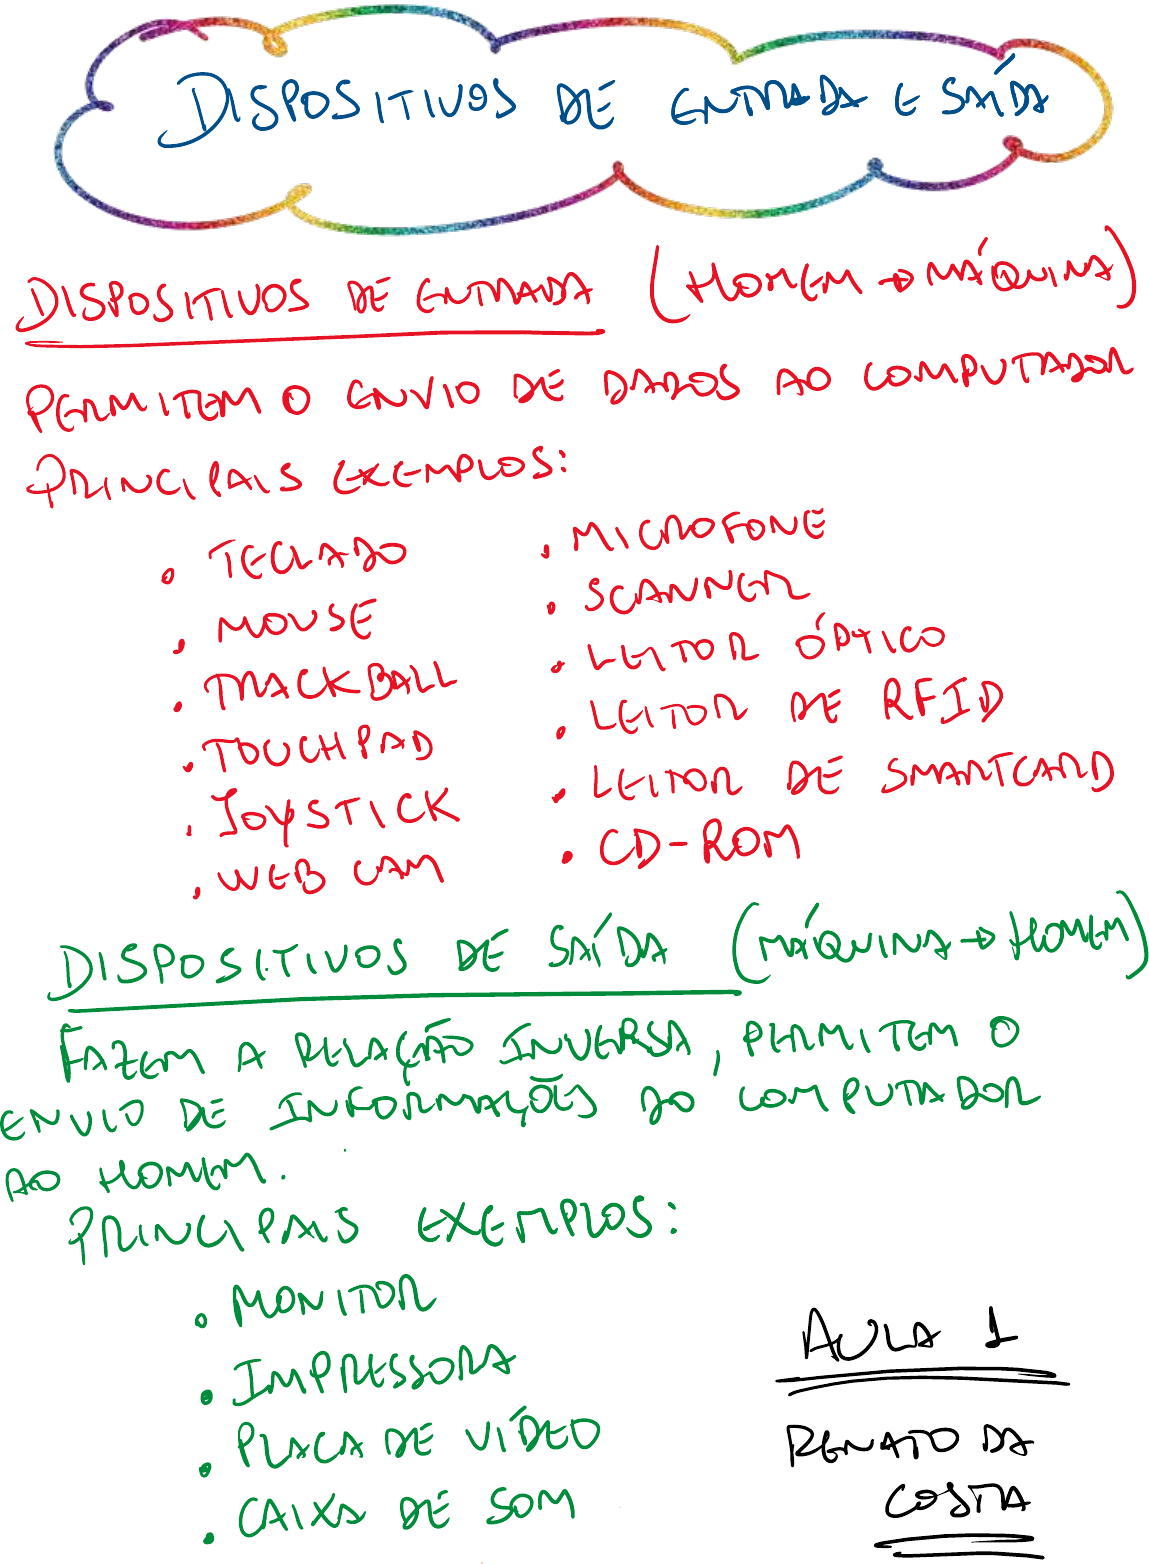 DISPOSITIVOS DE ENTRADA E SAÍDA
DISPOSITIVOS DE ENTRADA (HOMEM → MÁQUINA)
PERMITEM O ENVIO DE DADOS AO COMPUTADOR
PRINCIPAIS EXEMPLOS:
• TECLADO
• MOUSE
• TRACKBALL
• TOUCHPAD
• JOYSTICK
• WEB CAM
• MICROFONE
• SCANNER
• LEITOR ÓPTICO
• LEITOR DE RFID
• LEITOR DE SMARTCARD
• CD-ROM
DISPOSITIVOS DE SAÍDA (MÁQUINA → HOMEM)
FAZEM A RELAÇÃO INVERSA, PERMITEM O
ENVIO DE INFORMAÇÕES DO COMPUTADOR
AO HOMEM.
PRINCIPAIS EXEMPLOS:
• MONITOR
• IMPRESSORA
• PLACA DE VÍDEO
• CAIXA DE SOM
AULA 1
RENATO DA
COSTA